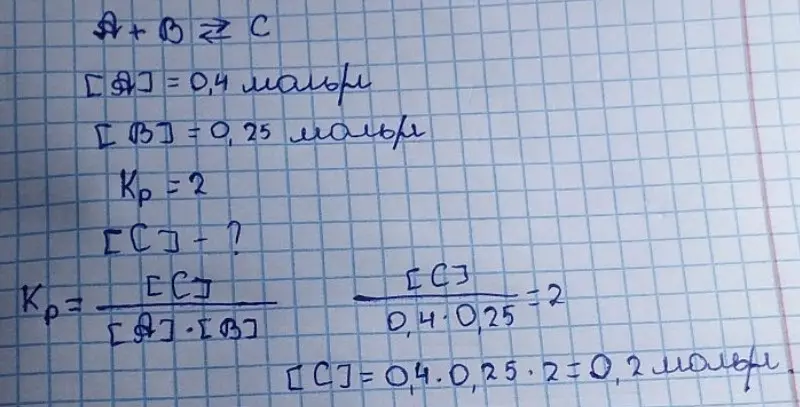 A + B ⇄ C
[A] = 0,4 моль/л
[B] = 0,25 моль/л
Kр = 2
[C] - ?
Kр = [C] / [A]·[B]    [C] / 0,4·0,25 = 2
[C] = 0,4·0,25·2 = 0,2 моль/л.